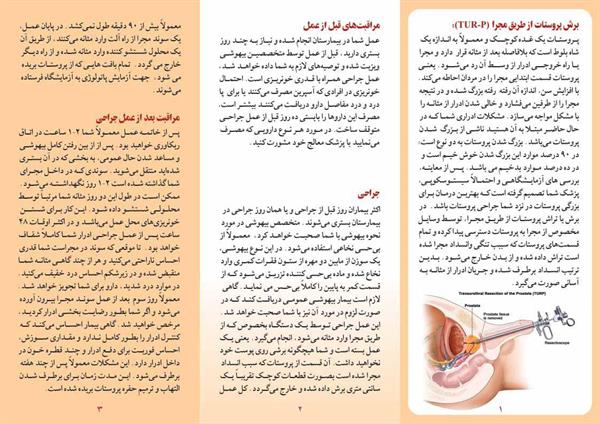 برش پروستات از طریق مجرا (TUR-P):
پروستات یک غده کوچک و معمولاً به اندازه یک
شاه بلوط است که بلافاصله بعد از مثانه قرار دارد و مجرا
یا راه خروجی ادرار از وسط آن رد می‌شود. یعنی
پروستات قسمت ابتدایی مجرا را در مردان احاطه می‌کند.
با افزایش سن، اندازه آن رفته رفته بزرگ شده و در نتیجه
مجرا را از طرفین می‌فشارد و خالی شدن ادرار از مثانه را
با مشکل مواجه می‌سازد. مشکلات ادراری شما که در
حال حاضر مبتلا به آن هستید ناشی از بزرگ شدن
پروستات می‌باشد. بزرگ شدن پروستات به دو نوع است:
در ۹۰ درصد موارد این بزرگ شدن خوش خیم است و
در ۱۰ درصد موارد بدخیم می‌باشد. پس از معاینه،
بررسی های آزمایشگاهی و احتمالاً سیستوسکوپی،
پزشک شما تصمیم گرفته است که بهترین درمان برای
بزرگی پروستات در نزد شما جراحی پروستات باشد. در
برش یا تراش پروستات از طریق مجرا، توسط وسایل
مخصوص از مجرا به پروستات دسترسی پیدا کرده و تمام
قسمت‌های پروستات که سبب تنگی وانسداد مجرا شده
است تراش داده شده و از بدن خارج می‌شود. بدین
ترتیب انسداد برطرف شده و جریان ادرار از مثانه به
آسانی صورت می‌گیرد.
Transurethral Resection of the Prostate (TURP)
Prostate
Prostate tissue
is removed
Resectoscope
۱
مراقبت‌های قبل از عمل
عمل شما در بیمارستان انجام شده و نیاز به چند روز
بستری دارید. قبل از عمل توسط متخصصین بیهوشی
ویزیت شده و توصیه‌های لازم به شما داده خواهد شد.
عمل جراحی همراه با قدری خونریزی است. احتمال
خونریزی در افرادی که آسپرین مصرف می‌کنند یا برای
درد و درد مفاصل دارو دریافت می‌کنند بیشتر است.
مصرف این داروها را بایستی ده روز قبل از عمل جراحی
متوقف ساخت. در مورد هر نوع دارویی که مصرف
می‌نمایید با پزشک معالج خود مشورت کنید.
جراحی
اکثر بیماران روز قبل از جراحی و یا همان روز جراحی در
بیمارستان بستری می‌شوند. متخصص بیهوشی در مورد
نحوه بیهوشی با شما صحبت خواهد کرد. معمولاً از
بی‌حسی نخاعی استفاده می‌شود. در این نوع بیهوشی،
یک سوزن از مابین دو مهره از ستون فقرات کمری وارد
نخاع شده و ماده بی‌حسی کننده تزریق می‌شود که از
قسمت کمر به پایین را کاملاً بی‌حس می نماید. گاهی
لازم است بیمار بیهوشی عمومی دریافت کند که در
صورت لزوم در مورد آن نیز با شما صحبت خواهد شد.
این عمل جراحی توسط یک دستگاه بخصوص که از
طریق مجرا وارد مثانه می‌شود، انجام می‌گیرد. یعنی یک
عمل بسته است و شما هیچگونه برشی روی پوست خود
نخواهید داشت. آن قسمت از پروستات که سبب انسداد
مجرا شده است بصورت قطعات کوچک تقریباً یک
سانتی متری برش داده شده و خارج می‌گردد. کل عمل
۲
معمولاً بیش از ۹۰ دقیقه طول نمی‌کشد. در پایان عمل،
یک سوند مجرا از راه آلت وارد مثانه می‌کنند. از طریق آن
یک محلول شستشو کننده وارد مثانه شده و از راه دیگر
خارج می گردد. تمام بافت هایی که از پروستات بریده
می‌شود. جهت آزمایش پاتولوژی به آزمایشگاه فرستاده
می‌شود.
مراقبت بعد از عمل جراحی
پس از خاتمه عمل معمولاً شما ۱تا۲ ساعت در اتاق
ریکاوری خواهید بود. پس از از بین رفتن کامل بیهوشی
و مساعد شدن حال عمومی، به بخشی که در آن بستری
شده‌اید منتقل می‌شوید. سوندی که در داخل مجرای
شما گذاشته شده است ۱تا۲ روز نگهداشته می‌شود.
ممکن است در طول این دو روز مثانه شما مرتبا توسط
محلولی شستشو داده شود. این کار برای شستن
خونریزی‌های محل عمل می‌باشد و در اکثر اوقات ۴۸
ساعت پس از عمل جراحی ادرار شما کاملاً شفاف
خواهد بود. تا موقعی که سوند در مجراست شما قدری
احساس ناراحتی می‌کنید و هر از چند گاهی مثانه شما
منقبض شده و در زیرشکم احساس درد خفیف می‌کنید.
در موارد درد شدید، دارو برای شما تجویز خواهد شد.
معمولاً روز سوم بعد از عمل سوند مجرا بیرون آورده
می‌شود و اگر شما بطور رضایت بخشی ادرار کردید.
مرخص خواهید شد. گاهی بیمار احساس می‌کند که
کنترل ادرار را بطور کامل ندارد و مقداری سوزش،
احساس فوریت برای دفع ادرار و چند قطره خون در
داخل ادرار دارد. این مشکلات معمولاً پس از چند هفته
برطرف می‌شود. این مدت زمان برای برطرف شدن
التهاب و ترمیم حفره پروستات بریده شده است.
۳